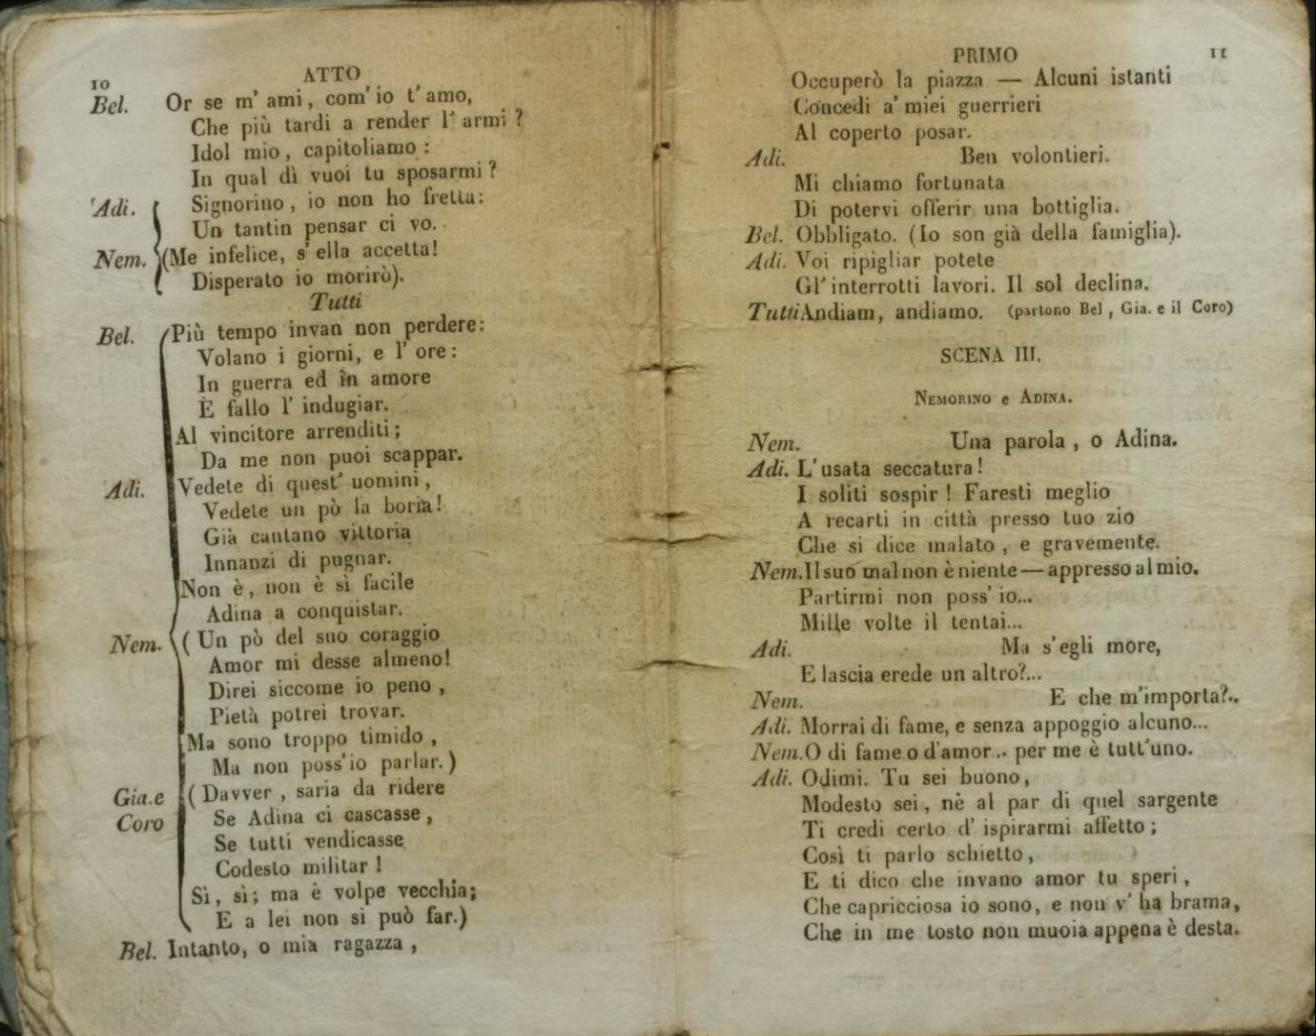 10
ATTO
Bel. Or se m' ami, com' io t' amo,
Che più tardi a render l' armi ?
Idol mio, capitoliamo :
In qual dì vuoi tu sposarmi ?
Adi. Signorino, io non ho fretta:
Un tantin pensar ci vo.
Nem. (Me infelice, s' ella accetta!
Disperato io morirò).
Tutti
Bel. Più tempo invan non perdere:
Volano i giorni, e l' ore :
In guerra ed in amore
È fallo l' indugiar.
Al vincitore arrenditi ;
Da me non puoi scappar.
Adi. Vedete di quest' uomini,
Vedete un pò la boria!
Già cantano vittoria
Innanzi di pugnar.
Non è, non è sì facile
Adina a conquistar.
Nem. ( Un pò del suo coraggio
Amor mi desse almeno!
Direi siccome io peno ,
Pietà potrei trovar.
Ma sono troppo timido ,
Ma non poss' io parlar.)
Gia. e Coro ( Davver , saria da ridere
Se Adina ci cascasse ,
Se tutti vendicasse
Codesto militar !
Sì, sì; ma è volpe vecchia;
E a lei non si può far.)
Bel. Intanto, o mia ragazza ,
PRIMO
11
Occuperò la piazza — Alcuni istanti
Concedi a' miei guerrieri
Al coperto posar.
Adi. Ben volontieri.
Mi chiamo fortunata
Di potervi offerir una bottiglia.
Bel. Obbligato. (Io son già della famiglia).
Adi. Voi ripigliar potete
Gl' interrotti lavori. Il sol declina.
Tutti Andiam, andiamo. (partono Bel , Gia. e il Coro)
SCENA III.
NEMORINO e ADINA.
Nem. Una parola , o Adina.
Adi. L' usata seccatura !
I soliti sospir ! Faresti meglio
A recarti in città presso tuo zio
Che si dice malato , e gravemente.
Nem. Il suo mal non è niente — appresso al mio.
Partirmi non poss' io...
Mille volte il tentai...
Adi. Ma s'egli more,
E lascia erede un altro?...
Nem. E che m'importa?..
Adi. Morrai di fame, e senza appoggio alcuno...
Nem. O di fame o d'amor... per me è tutt'uno.
Adi. Odimi. Tu sei buono,
Modesto sei, nè al par di quel sargente
Ti credi certo d' ispirarmi affetto ;
Così ti parlo schietto,
E ti dico che invano amor tu speri ,
Che capricciosa io sono, e non v' ha brama,
Che in me tosto non muoia appena è desta.